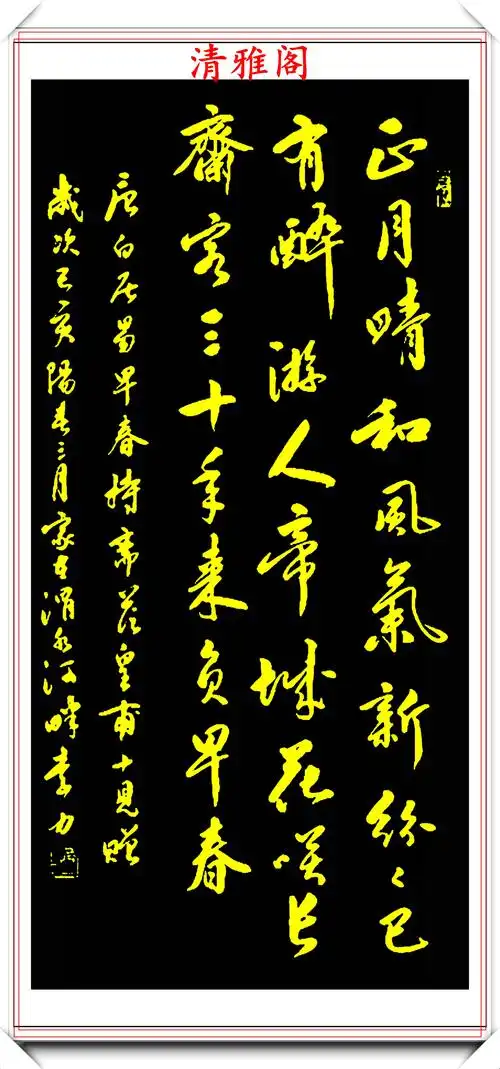 清雅阁
正月晴和風氣新紛々已
有醉游人帝城花咲長
齋客三十年来负早春
唐白居易早春持齋答皇甫十見贈
歲次己亥陽春三月家在渭水河畔李力